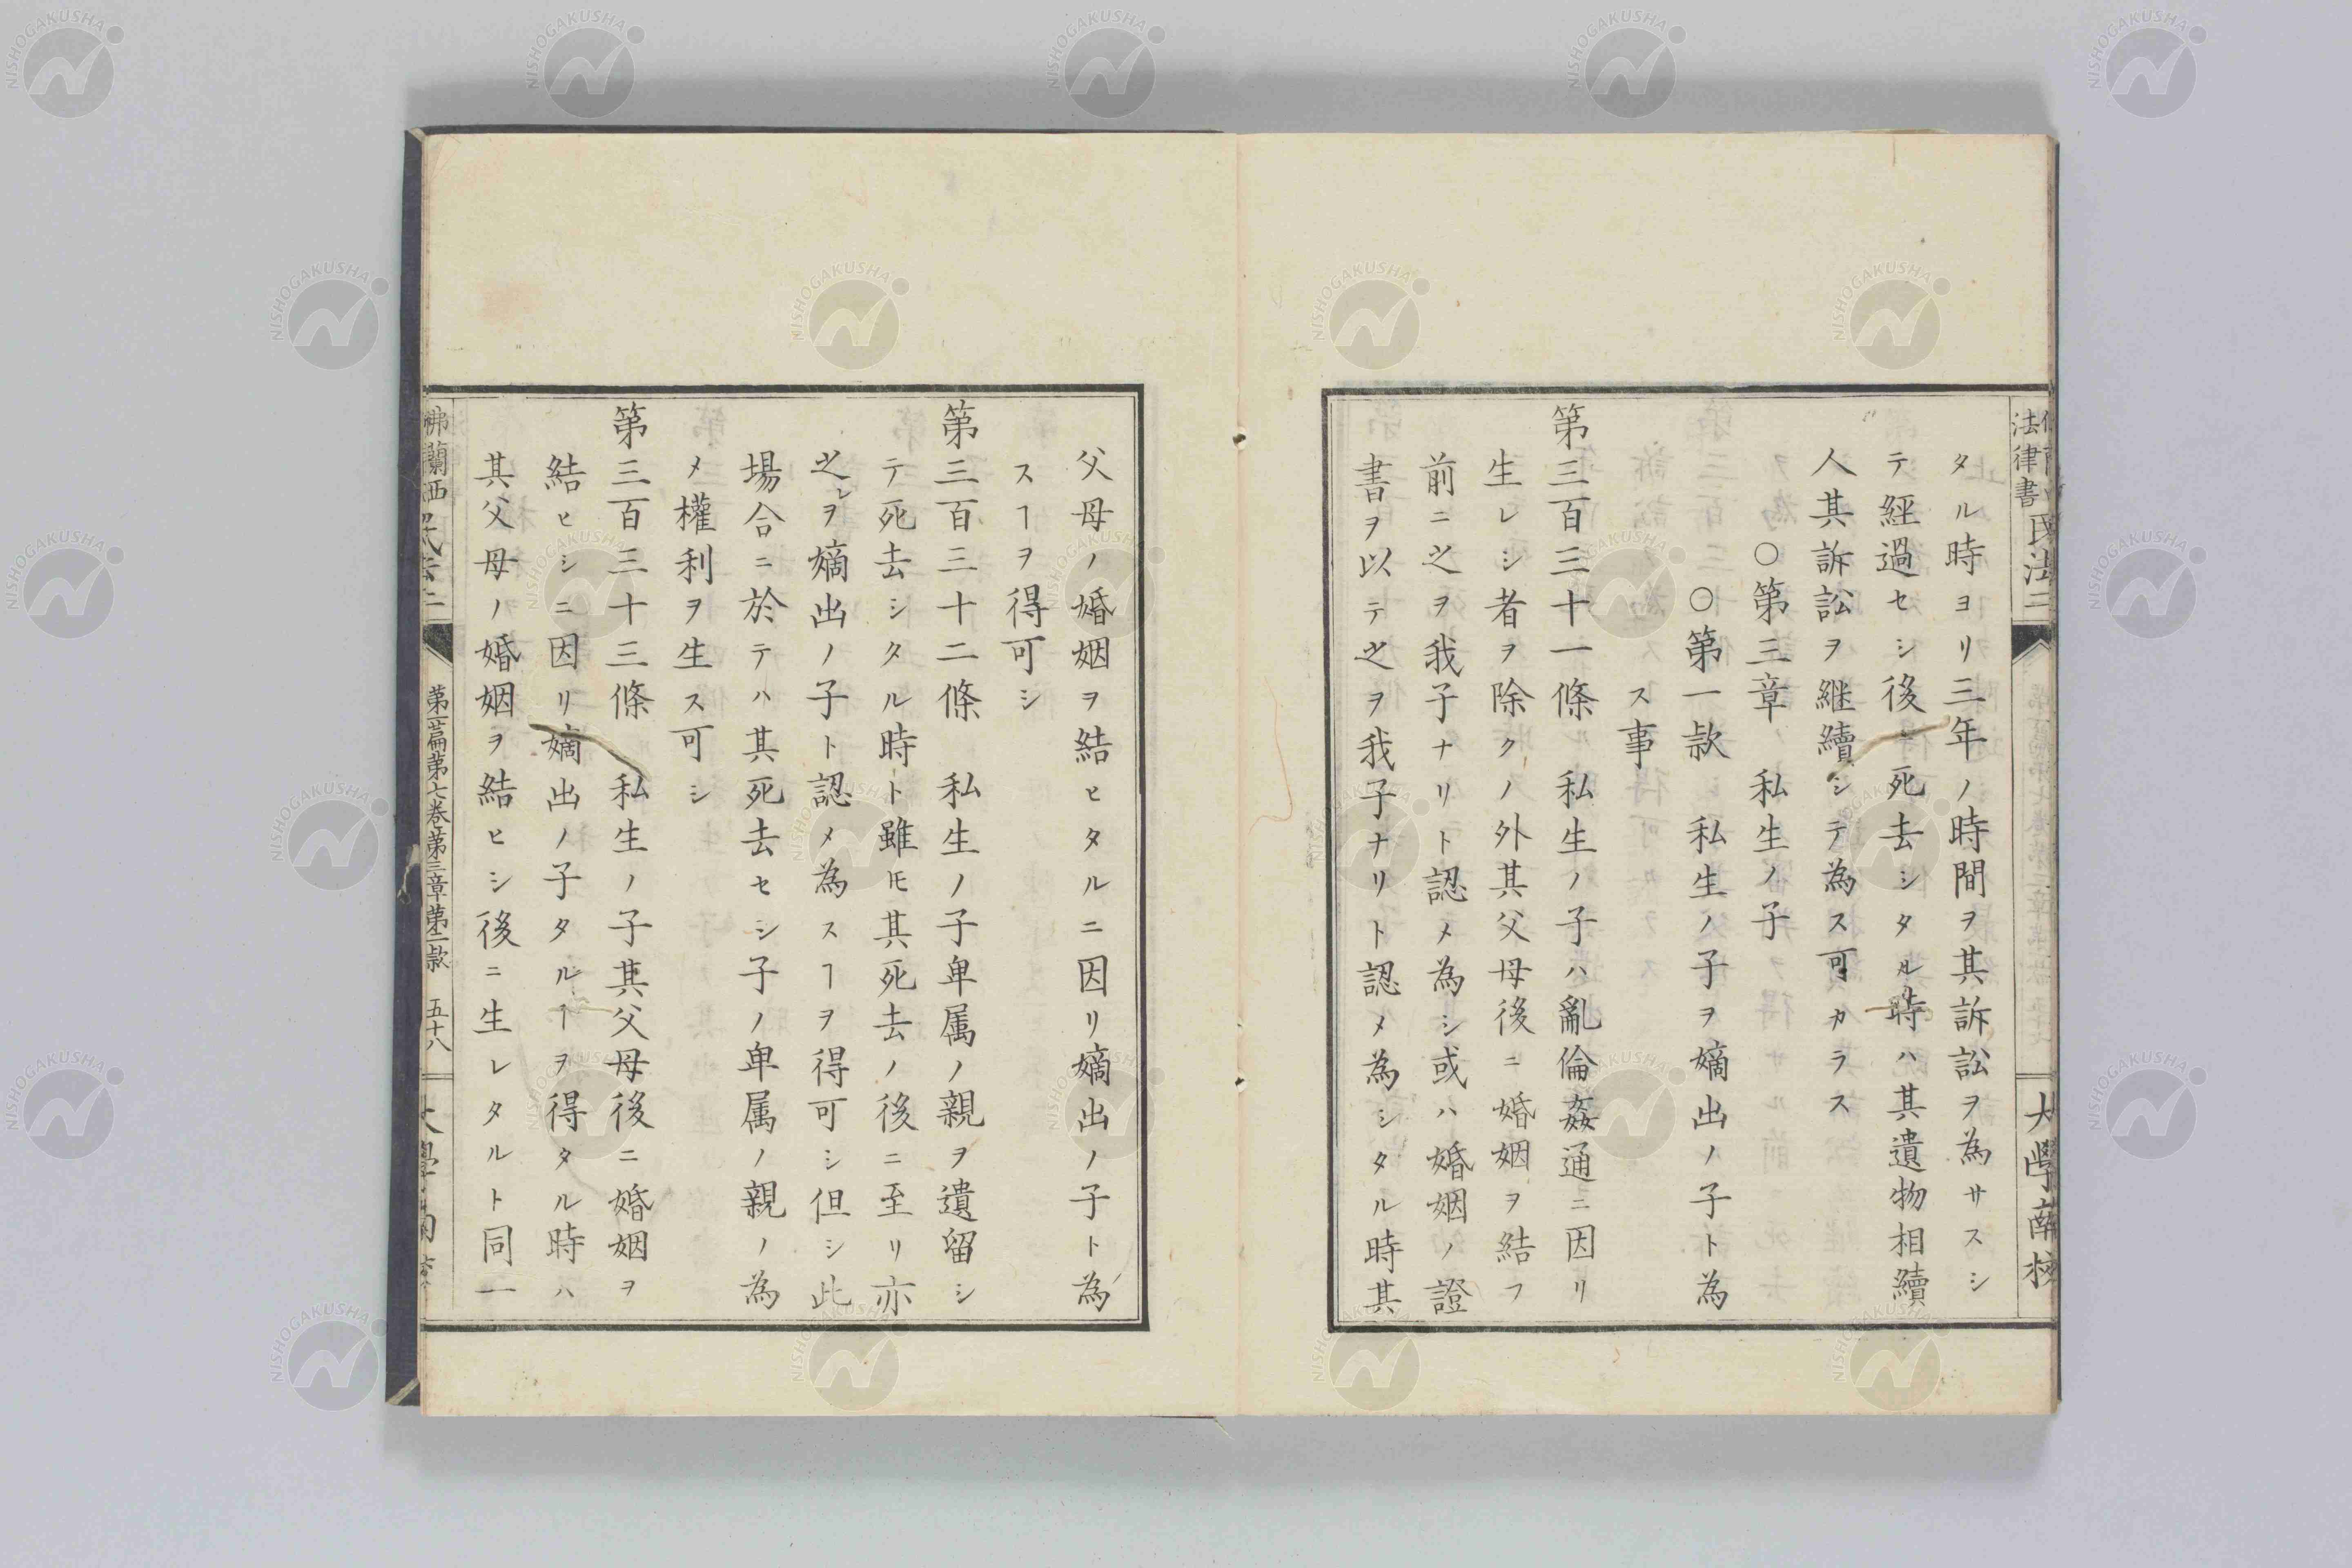 法律書 民法二
大學南校
タル時ヨリ三年ノ時間ヲ其訴訟ヲ為サスシ
テ經過セシ後ニ死去シタル時ハ其遺物相續
人其訴訟ヲ継續シテ為ス可カラス
○第三章 私生ノ子
○第一款 私生ノ子ヲ嫡出ノ子ト為
ス事
第三百三十一條 私生ノ子ハ亂倫姦通ニ因リ
生レシ者ヲ除クノ外其父母後ニ婚姻ヲ結フ
前ニ之ヲ我子ナリト認メ為シ或ハ婚姻ノ證
書ヲ以テ之ヲ我子ナリト認メ為シタル時其
父母ノ婚姻ヲ結ヒタルニ因リ嫡出ノ子ト為
スヿヲ得可シ
第三百三十二條 私生ノ子卑属ノ親ヲ遺留シ
テ死去シタル時ト雖𪜈其死去ノ後ニ至リ亦
之レヲ嫡出ノ子ト認メ為スヿヲ得可シ但シ此
場合ニ於テハ其死去セシ子ノ卑属ノ親ノ為
メ權利ヲ生ス可シ
第三百三十三條 私生ノ子其父母後ニ婚姻ヲ
結ヒシニ因リ嫡出ノ子タルヿヲ得タル時ハ
其父母ノ婚姻ヲ結ヒシ後ニ生レタルト同一
佛蘭西
第一篇第七卷第三章第一款 五十八
NISHOGAKUSHA